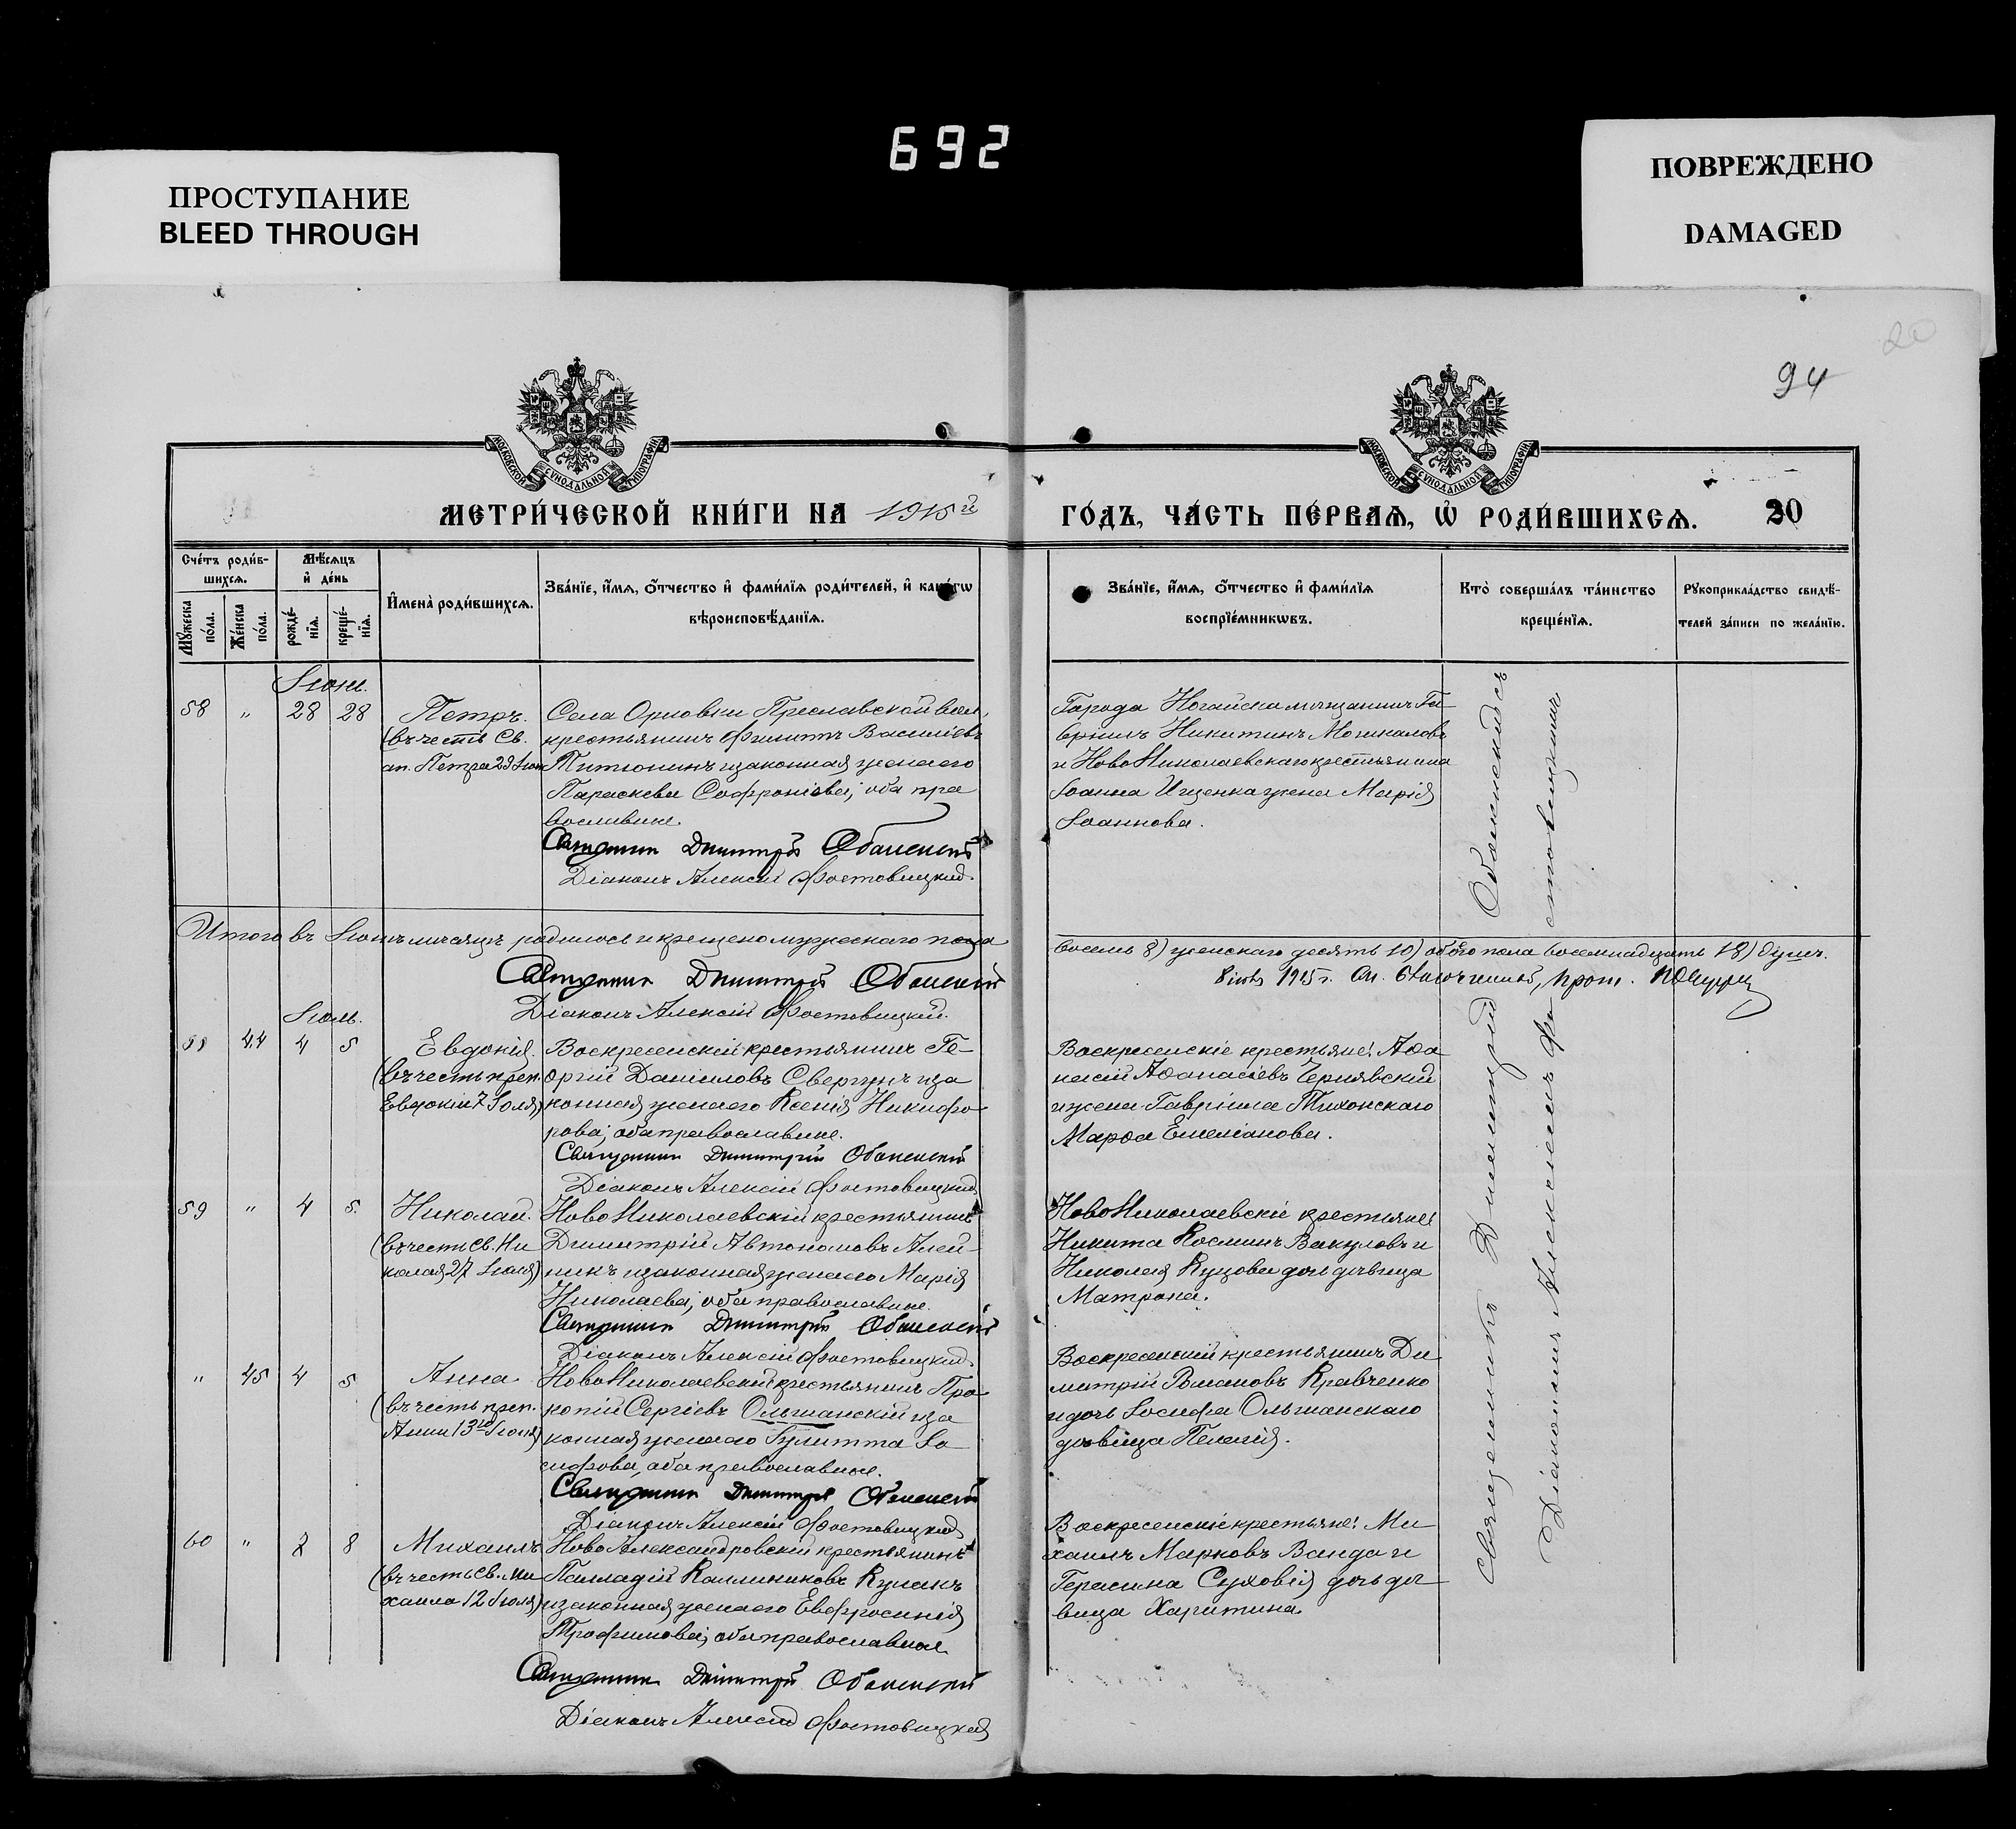 692
ПРОСТУПАНИЕ
BLEED THROUGH
ПОВРЕЖДЕНО
DAMAGED
20
94
МОСКОВСКОЙ СѴНОДАЛЬНОЙ ТИПОГРАФІИ
МОСКОВСКОЙ СѴНОДАЛЬНОЙ ТИПОГРАФІИ
МЕТРИ́ЧЕСКОЙ КНИ́ГИ НА 1915й
ГО́ДЪ, ЧА́СТЬ ПЕ́РВАѦ, Ѡ҆ РОДИ́ВШИХСѦ. 20
Счéтъ роди́в-
шихсѧ.
Мꙋ́жеска по́ла.
Же́нска по́ла.
Мѣ́сѧцъ
и҆ де́нь
рожде́-
нїѧ.
креще́-
нїѧ.
И҆мена̀ роди́вшихсѧ.
Зва́нїе, и҆́мѧ, ѻ҆́тчество и҆ фами́лїѧ роди́телей, и҆ како́гѡ
вѣроисповѣ́данїѧ.
Зва́нїе, и҆́мѧ, ѻ҆́тчество и҆ фами́лїѧ
воспрїе́мникѡвъ.
Кто̀ соверша́лъ та́инство
креще́нїѧ.
Рꙋкоприкла́дство свидѣ́-
телей за́писи по жела́нїю.
Іюнь.
58 " 28 28
Петръ.
(въ честь Св.
ап. Петра 29 Іюн
Села Орловки Преславской вол,
крестьянинъ Филиппъ Василіевъ
Титюнинъ и законная жена его
Параскева Софроніова; оба пра
вославные.
Священникъ Димитрій Обаненскій
Діаконъ Алексій Фостовицкий.
Города Ногайска мѣщанинъ Га-
вріилъ Никитинъ Мочикаловъ
и НовоНиколаевскаго крестьянина
Іоанна Ищенка жена Марія
Іоаннова.
Итого въ Іюнѣ мѣсяцѣ родилось и крещено мужескаго пола
восемь 8) женскаго десять 10) обоего пола восемнадцать 18) душъ.
Священникъ Димитрій Обаненскій
Діаконъ Алексій Фостовицкий.
1915 г.
Іюль.
44 4 5
Евдокія.
(въ честь преп.
Евдокіи 7 Іюля)
Воскресенскій крестьянинъ Ге-
оргій Даніиловъ Свергунъ и за
конная жена его Ксенія Никифо-
рова; оба православные.
Священникъ Димитрій Обаненскій
Діаконъ Алексій Фостовицкий
Воскресенскіе крестьяне: Аѳа
насій Аѳанасіевъ Чернявский
и жена Гавріила Тихонскаго
Марѳа Емеліанова.
59 " 4 5.
Николай.
(въ честь Св. Ни
колая 27 Іюля)
НовоНиколаевскій крестьянинъ
Димитрій Автономовъ Алей-
никъ и законная жена его Марія
Николаева; оба православные.
Священникъ Димитрій Обаненскій
Діаконъ Алексій Фостовицкий.
НовоНиколаевскіе крестьяне
Никита Косминъ Вакуловъ и
Николая Куцова дочь дѣвица
Матрона.
" 45 4 5
Анна
(въ честь преп.
Анны 13го Іюля)
НовоНиколаевскій крестьянинъ Про-
копій Сергіевъ Ольшанскій и за
конная жена его Іулитта Іо
сифова, оба православные.
Священникъ Димитрій Обаненскій
Діаконъ Алексій Фостовицкий
Воскресенскій крестьянинъ Ди
митрій Романовъ Кравченко
и дочь Іосифа Ольшанскаго
дѣвица Пелагія.
60 " 2 8
Михаилъ
(въ честь Св. Ми
хаила 12 Іюля)
НовоАлександровскій крестьянинъ
Палладій Каллиниковъ Кулакъ
и законная жена его Евфросинія
Трофимова; оба православные
Священникъ Димитрій Обаненскій
Діаконъ Алексій Фостовицкий
Воскресенскіе крестьяне: Ми
хаилъ Марковъ Ванда и
Герасима Суховія дочь дѣ
вица Харитина.
Священникъ Димитрій Обаненскій съ
Діакономъ Алексіемъ Фостовицкимъ